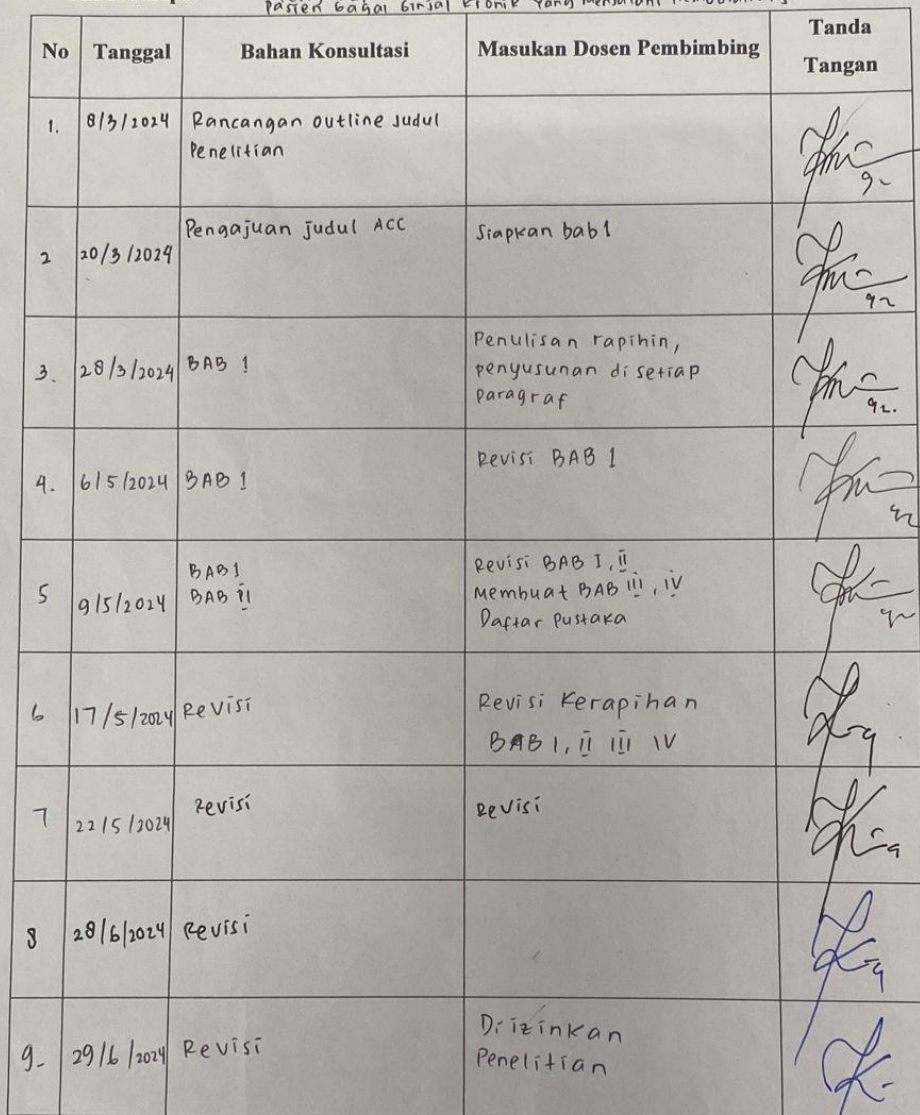 Pasien Gagal Ginjal Kronik Yang Menjalani
No Tanggal Bahan Konsultasi Masukan Dosen Pembimbing Tanda
Tangan
1. 8/3/2024 Rancangan outline Judul
Penelitian
2 20/3/2024 Pengajuan judul ACC Siapkan bab 1
3. 28/3/2024 BAB 1 Penulisan rapihin,
penyusunan di setiap
paragraf
4. 6/5/2024 BAB 1 Revisi BAB 1
5 9/5/2024 BAB 1 Revisi BAB I, II
BAB II Membuat BAB III, IV
Daftar Pustaka
6 17/5/2024 Revisi Revisi Kerapihan
BAB I, II III IV
7 22/5/2024 Revisi Revisi
8 28/6/2024 Revisi
9- 29/6/2024 Revisi Diizinkan
Penelitian